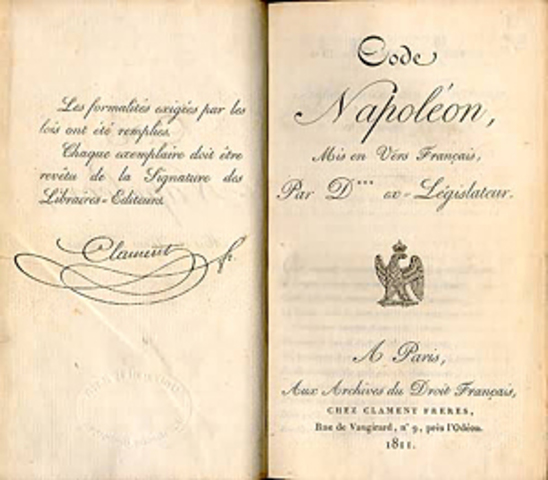 Les formalités exigées par les
lois ont été remplies.
Chaque exemplaire doit être
revêtu de la Signature des
Libraires-Editeurs.
Clament fr.
Code
Napoléon,
Mis en Vers Français,
Par D*** ex-Législateur.
A Paris,
Aux Archives du Droit Français,
CHEZ CLAMENT FRERES,
Rue de Vaugirard, n° 9, près l'Odéon.
1811.